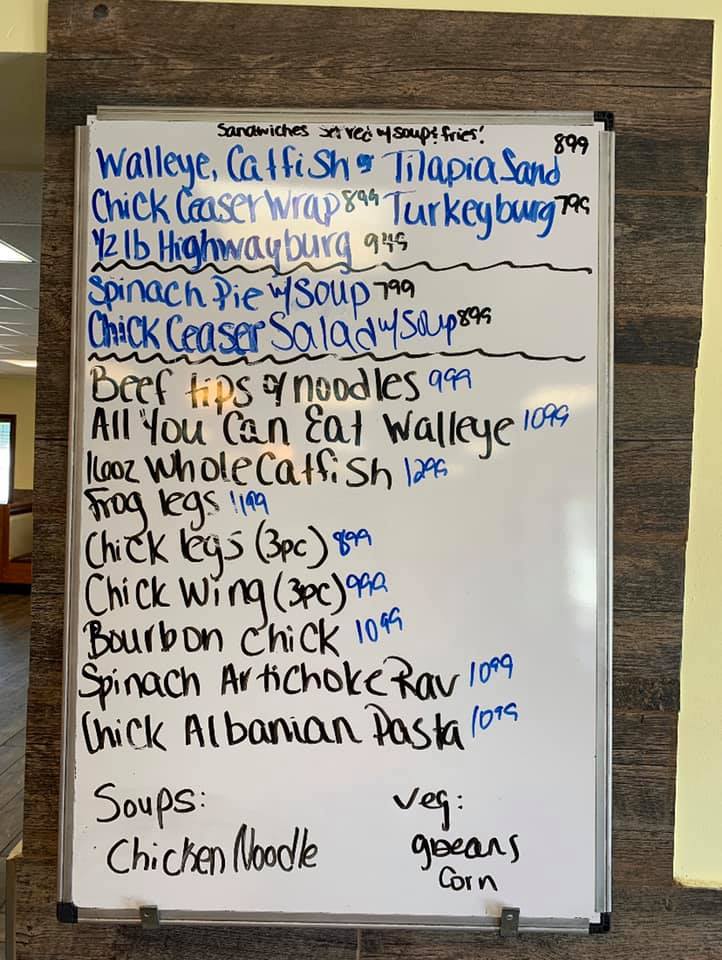 Sandwiches served w/ soup & fries!
899
Walleye, Catfish or Tilapia Sand
Chick Ceaser Wrap 899 Turkeyburg 799
1/2 lb Highwayburg 949
Spinach Pie w/ Soup 799
Chick Ceaser Salad w/ Soup 899
Beef tips w/ noodles 999
All You Can Eat Walleye 1099
16oz Whole Catfish 1299
Frog legs 1199
Chick legs (3pc) 899
Chick Wing (3pc) 999
Bourbon Chick 1099
Spinach Artichoke Rav 1099
Chick Albanian Pasta 1099
Soups:
Chicken Noodle
Veg:
gbeans
Corn